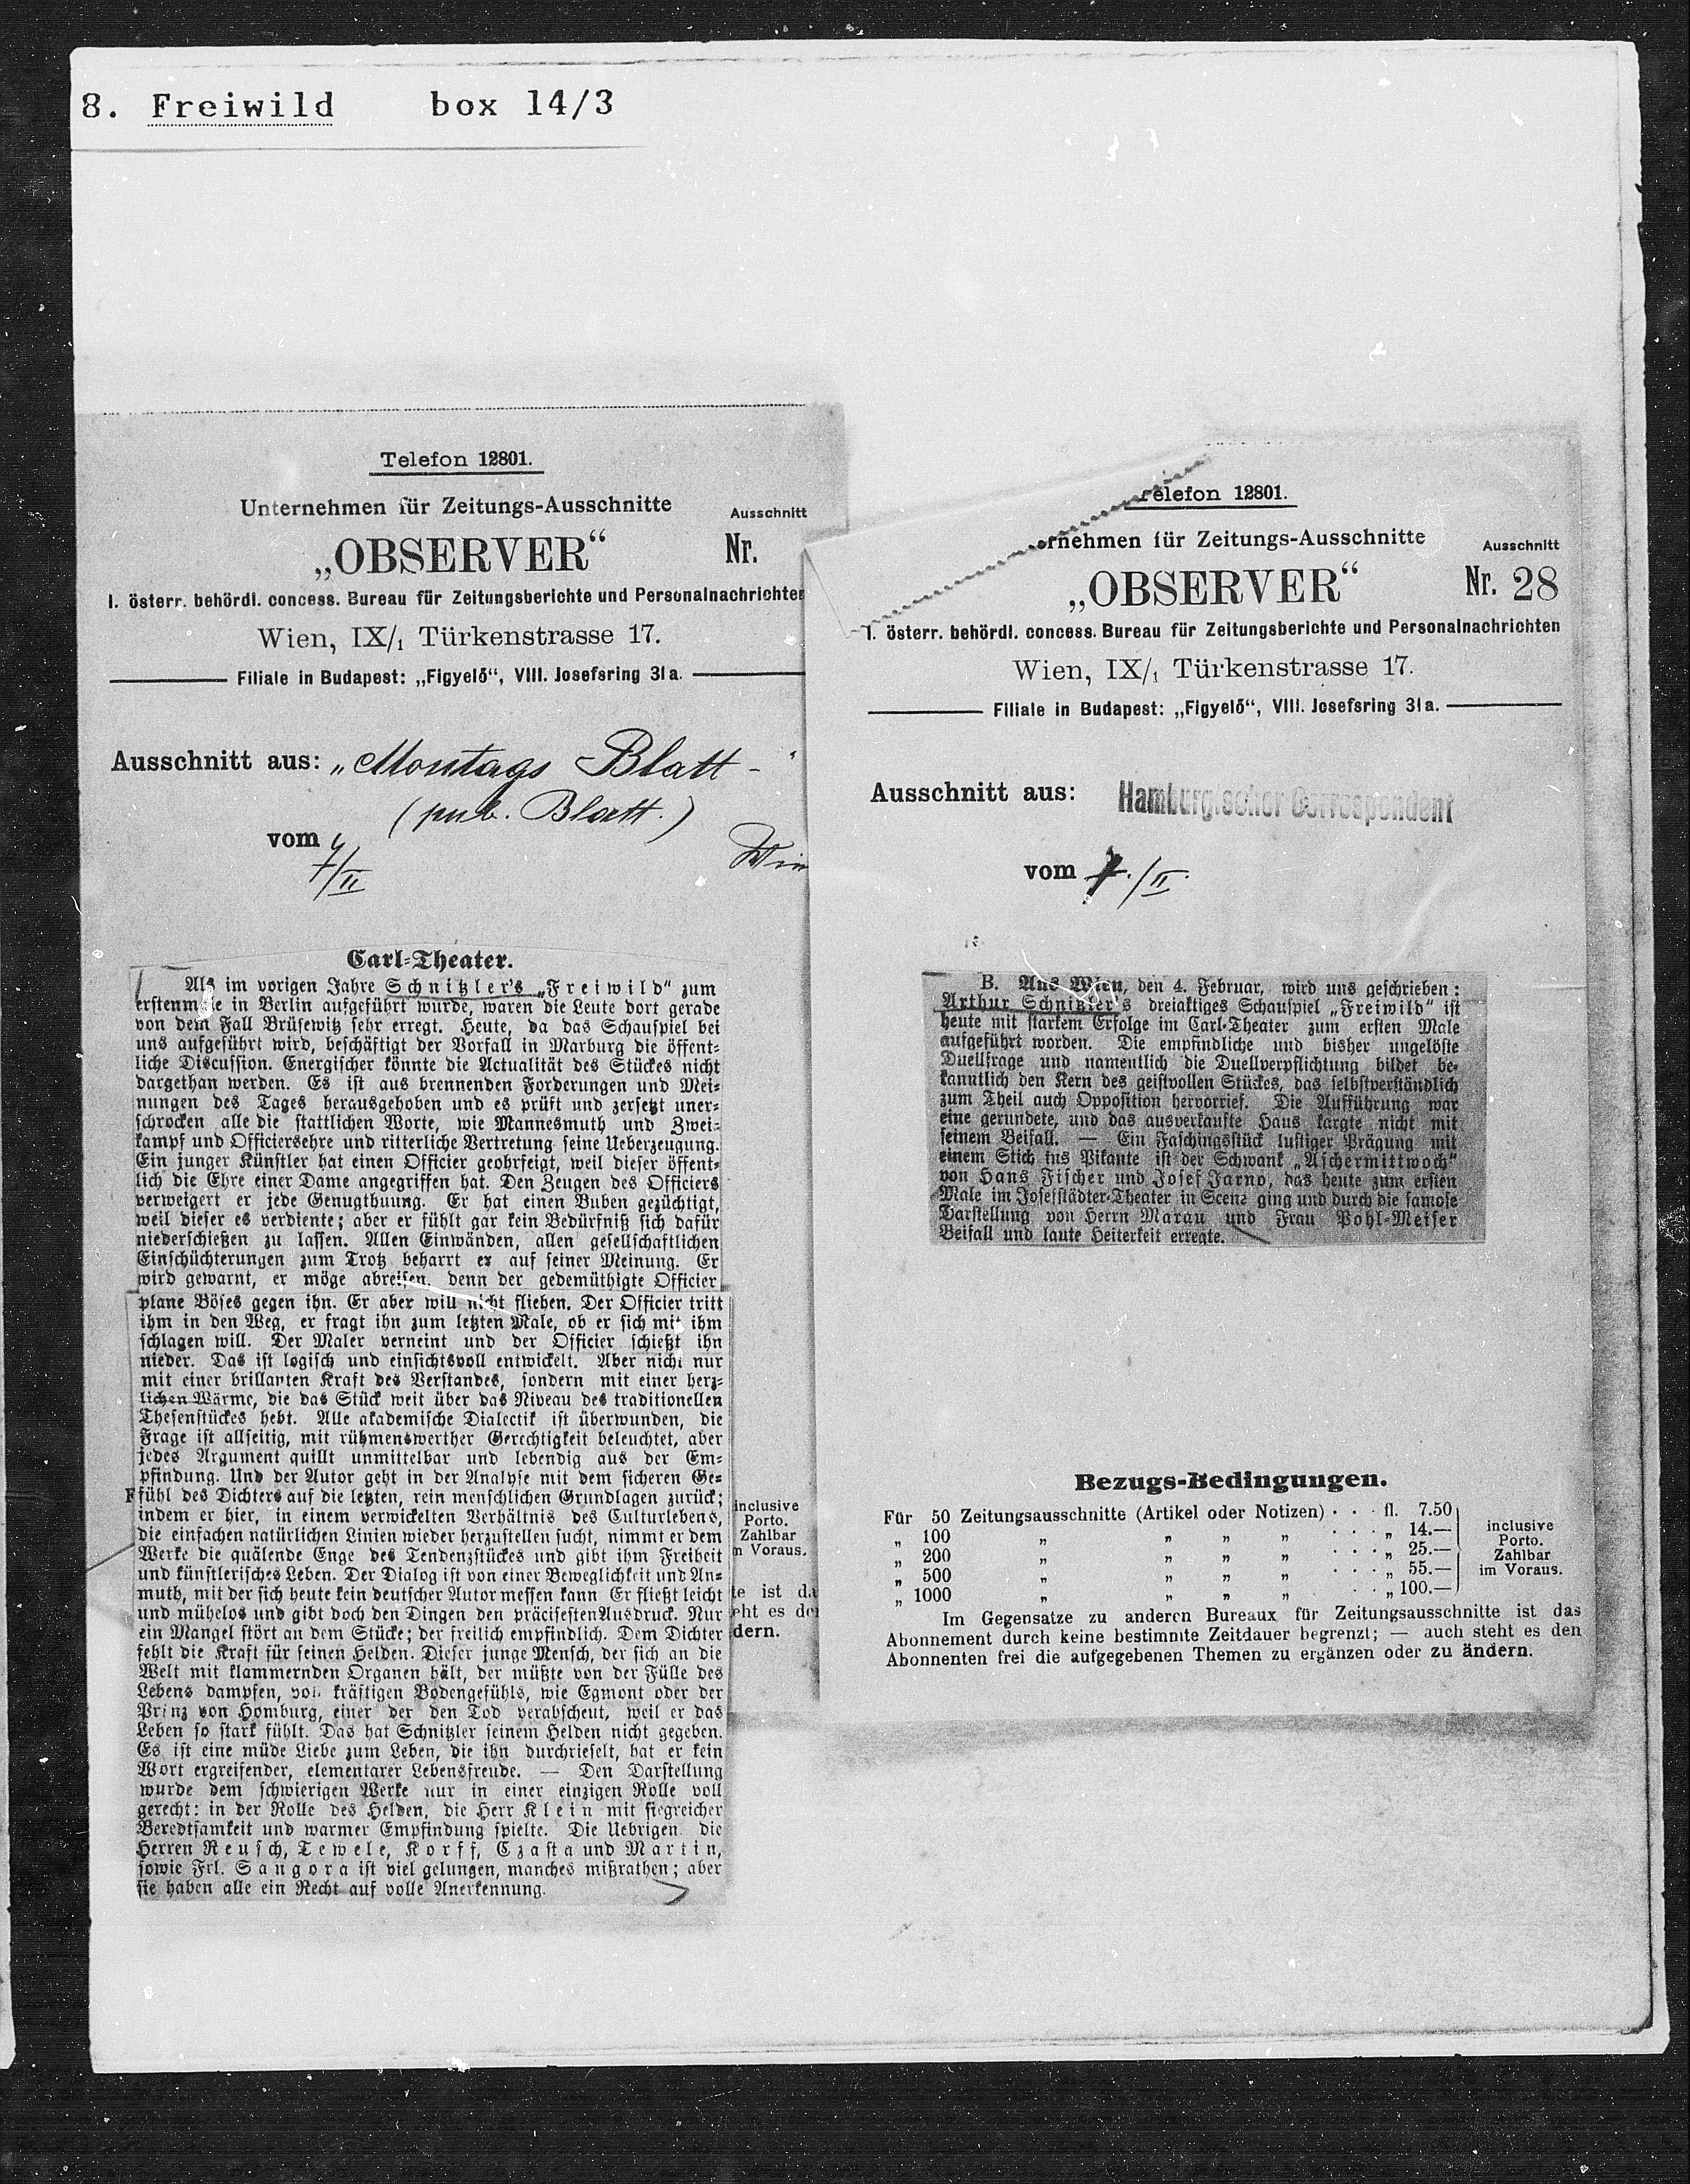 8. Freiwild box 14/3
Telefon 12801.
Unternehmen für Zeitungs-Ausschnitte
Ausschnitt
„OBSERVER“
Nr.
I. österr. behördl. concess. Bureau für Zeitungsberichte und Personalnachrichten
Wien, IX/1 Türkenstrasse 17.
Filiale in Budapest: „Figyelő“, VIII. Josefsring 31a.
Ausschnitt aus: „Montags Blatt -“
Blatt.)
vom 7/II
Wien
Carl-Theater.
Als im vorigen Jahre Schnitzler's „Freiwild“ zum
erstenmale in Berlin aufgeführt wurde, waren die Leute dort gerade
von dem Fall Brüsewitz sehr erregt. Heute, da das Schauspiel bei
uns aufgeführt wird, beschäftigt der Vorfall in Marburg die öffent-
liche Discussion. Energischer könnte die Actualität des Stückes nicht
dargethan werden. Es ist aus brennenden Forderungen und Mei-
nungen des Tages herausgehoben und es prüft und zersetzt uner-
schrocken alle die stattlichen Worte, wie Mannesmuth und Zwei-
kampf und Officiersehre und ritterliche Vertretung seine Ueberzeugung.
Ein junger Künstler hat einen Officier geohrfeigt, weil dieser öffent-
lich die Ehre einer Dame angegriffen hat. Den Zeugen des Officiers
verweigert er jede Genugthuung. Er hat einen Buben gezüchtigt,
weil dieser es verdiente; aber er fühlt gar kein Bedürfniß sich dafür
niederschießen zu lassen. Allen Einwänden, allen gesellschaftlichen
Einschüchterungen zum Trotz beharrt er auf seiner Meinung. Er
wird gewarnt, er möge abreisen, denn der gedemüthigte Officier
plane Böses gegen ihn. Er aber will nicht fliehen. Der Officier tritt
ihm in den Weg, er fragt ihn zum letzten Male, ob er sich mit ihm
schlagen will. Der Maler verneint und der Officier schießt ihn
nieder. Das ist logisch und einsichtsvoll entwickelt. Aber nicht nur
mit einer brillanten Kraft des Verstandes, sondern mit einer herz-
lichen Wärme, die das Stück weit über das Niveau des traditionellen
Thesenstückes hebt. Alle akademische Dialectik ist überwunden, die
Frage ist allseitig, mit rühmenswerther Gerechtigkeit beleuchtet, aber
jedes Argument quillt unmittelbar und lebendig aus der Em-
pfindung. Und der Autor geht in der Analyse mit dem sicheren Ge-
fühl des Dichters auf die letzten, rein menschlichen Grundlagen zurück;
indem er hier, in einem verwickelten Verhältnis des Culturlebens,
die einfachen natürlichen Linien wieder herzustellen sucht, nimmt er dem
Werke die quälende Enge des Tendenzstückes und gibt ihm Freiheit
und künstlerisches Leben. Der Dialog ist von einer Beweglichkeit und An-
muth, mit der sich heute kein deutscher Autor messen kann Er fließt leicht
und mühelos und gibt doch den Dingen den präcisesten Ausdruck. Nur
ein Mangel stört an dem Stücke; der freilich empfindlich. Dem Dichter
fehlt die Kraft für seinen Helden. Dieser junge Mensch, der sich an die
Welt mit klammernden Organen hält, der müßte von der Fülle des
Lebens dampfen, voll kräftigen Bodengefühls, wie Egmont oder der
Prinz von Homburg, einer der den Tod verabscheut, weil er das
Leben so stark fühlt. Das hat Schnitzler seinem Helden nicht gegeben.
Es ist eine müde Liebe zum Leben, die ihn durchrieselt, hat er kein
Wort ergreifender, elementarer Lebensfreude. — Den Darstellung
wurde dem schwierigen Werke nur in einer einzigen Rolle voll
gerecht: in der Rolle des Helden, die Herr Klein mit siegreicher
Beredtsamkeit und warmer Empfindung spielte. Die Uebrigen die
Herren Reusch, Tewele, Korff, Czasta und Martin,
sowie Frl. Sangora ist viel gelungen, manches mißrathen; aber
sie haben alle ein Recht auf volle Anerkennung.
F
inclusive
Porto.
Zahlbar
m Voraus.
te ist da
eht es den
dern.
Telefon 12801.
ernehmen für Zeitungs-Ausschnitte
Ausschnitt
„OBSERVER“
Nr. 28
I. österr. behördl. concess. Bureau für Zeitungsberichte und Personalnachrichten
Wien, IX/1 Türkenstrasse 17.
Filiale in Budapest: „Figyelő“, VIII. Josefsring 31a.
Ausschnitt aus: Hamburgischer Correspondent
vom 7./II.
B. Aus Wien, den 4. Februar, wird uns geschrieben:
Arthur Schnitzler's dreiaktiges Schauspiel „Freiwild“ ist
heute mit starkem Erfolge im Carl-Theater zum ersten Male
aufgeführt worden. Die empfindliche und bisher ungelöste
Duellfrage und namentlich die Duellverpflichtung bildet be-
kanntlich den Kern des geistvollen Stückes, das selbstverständlich
zum Theil auch Opposition hervorrief. Die Aufführung war
eine gerundete, und das ausverkaufte Haus kargte nicht mit
seinem Beifall. — Ein Faschingsstück lustiger Prägung mit
einem Stich ins Pikante ist der Schwank „Aschermittwoch“
von Hans Fischer und Josef Jarno, das heute zum ersten
Male im Josefstädter-Theater in Scene ging und durch die famose
Darstellung von Herrn Marau und Frau Pohl-Meiser
Beifall und laute Heiterkeit erregte.
Bezugs-Bedingungen.
Für 50 Zeitungsausschnitte (Artikel oder Notizen) · · · fl. 7.50
„ 100 „ „ „ „ · · · „ 14.—
„ 200 „ „ „ „ · · · „ 25.—
„ 500 „ „ „ „ · · · „ 55.—
„ 1000 „ „ „ „ · · „ 100.—
inclusive
Porto.
Zahlbar
im Voraus.
Im Gegensatze zu anderen Bureaux für Zeitungsausschnitte ist das
Abonnement durch keine bestimmte Zeitdauer begrenzt; — auch steht es den
Abonnenten frei die aufgegebenen Themen zu ergänzen oder zu ändern.